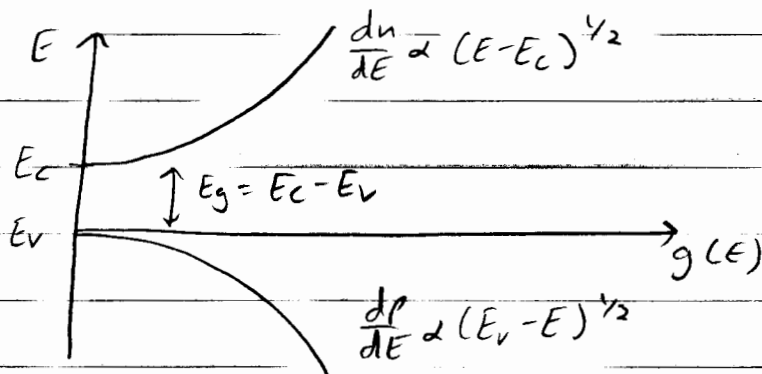 E
dn/dE α (E-Ec)^1/2
Ec
Eg = Ec - Ev
Ev
g(E)
dp/dE α (Ev-E)^1/2